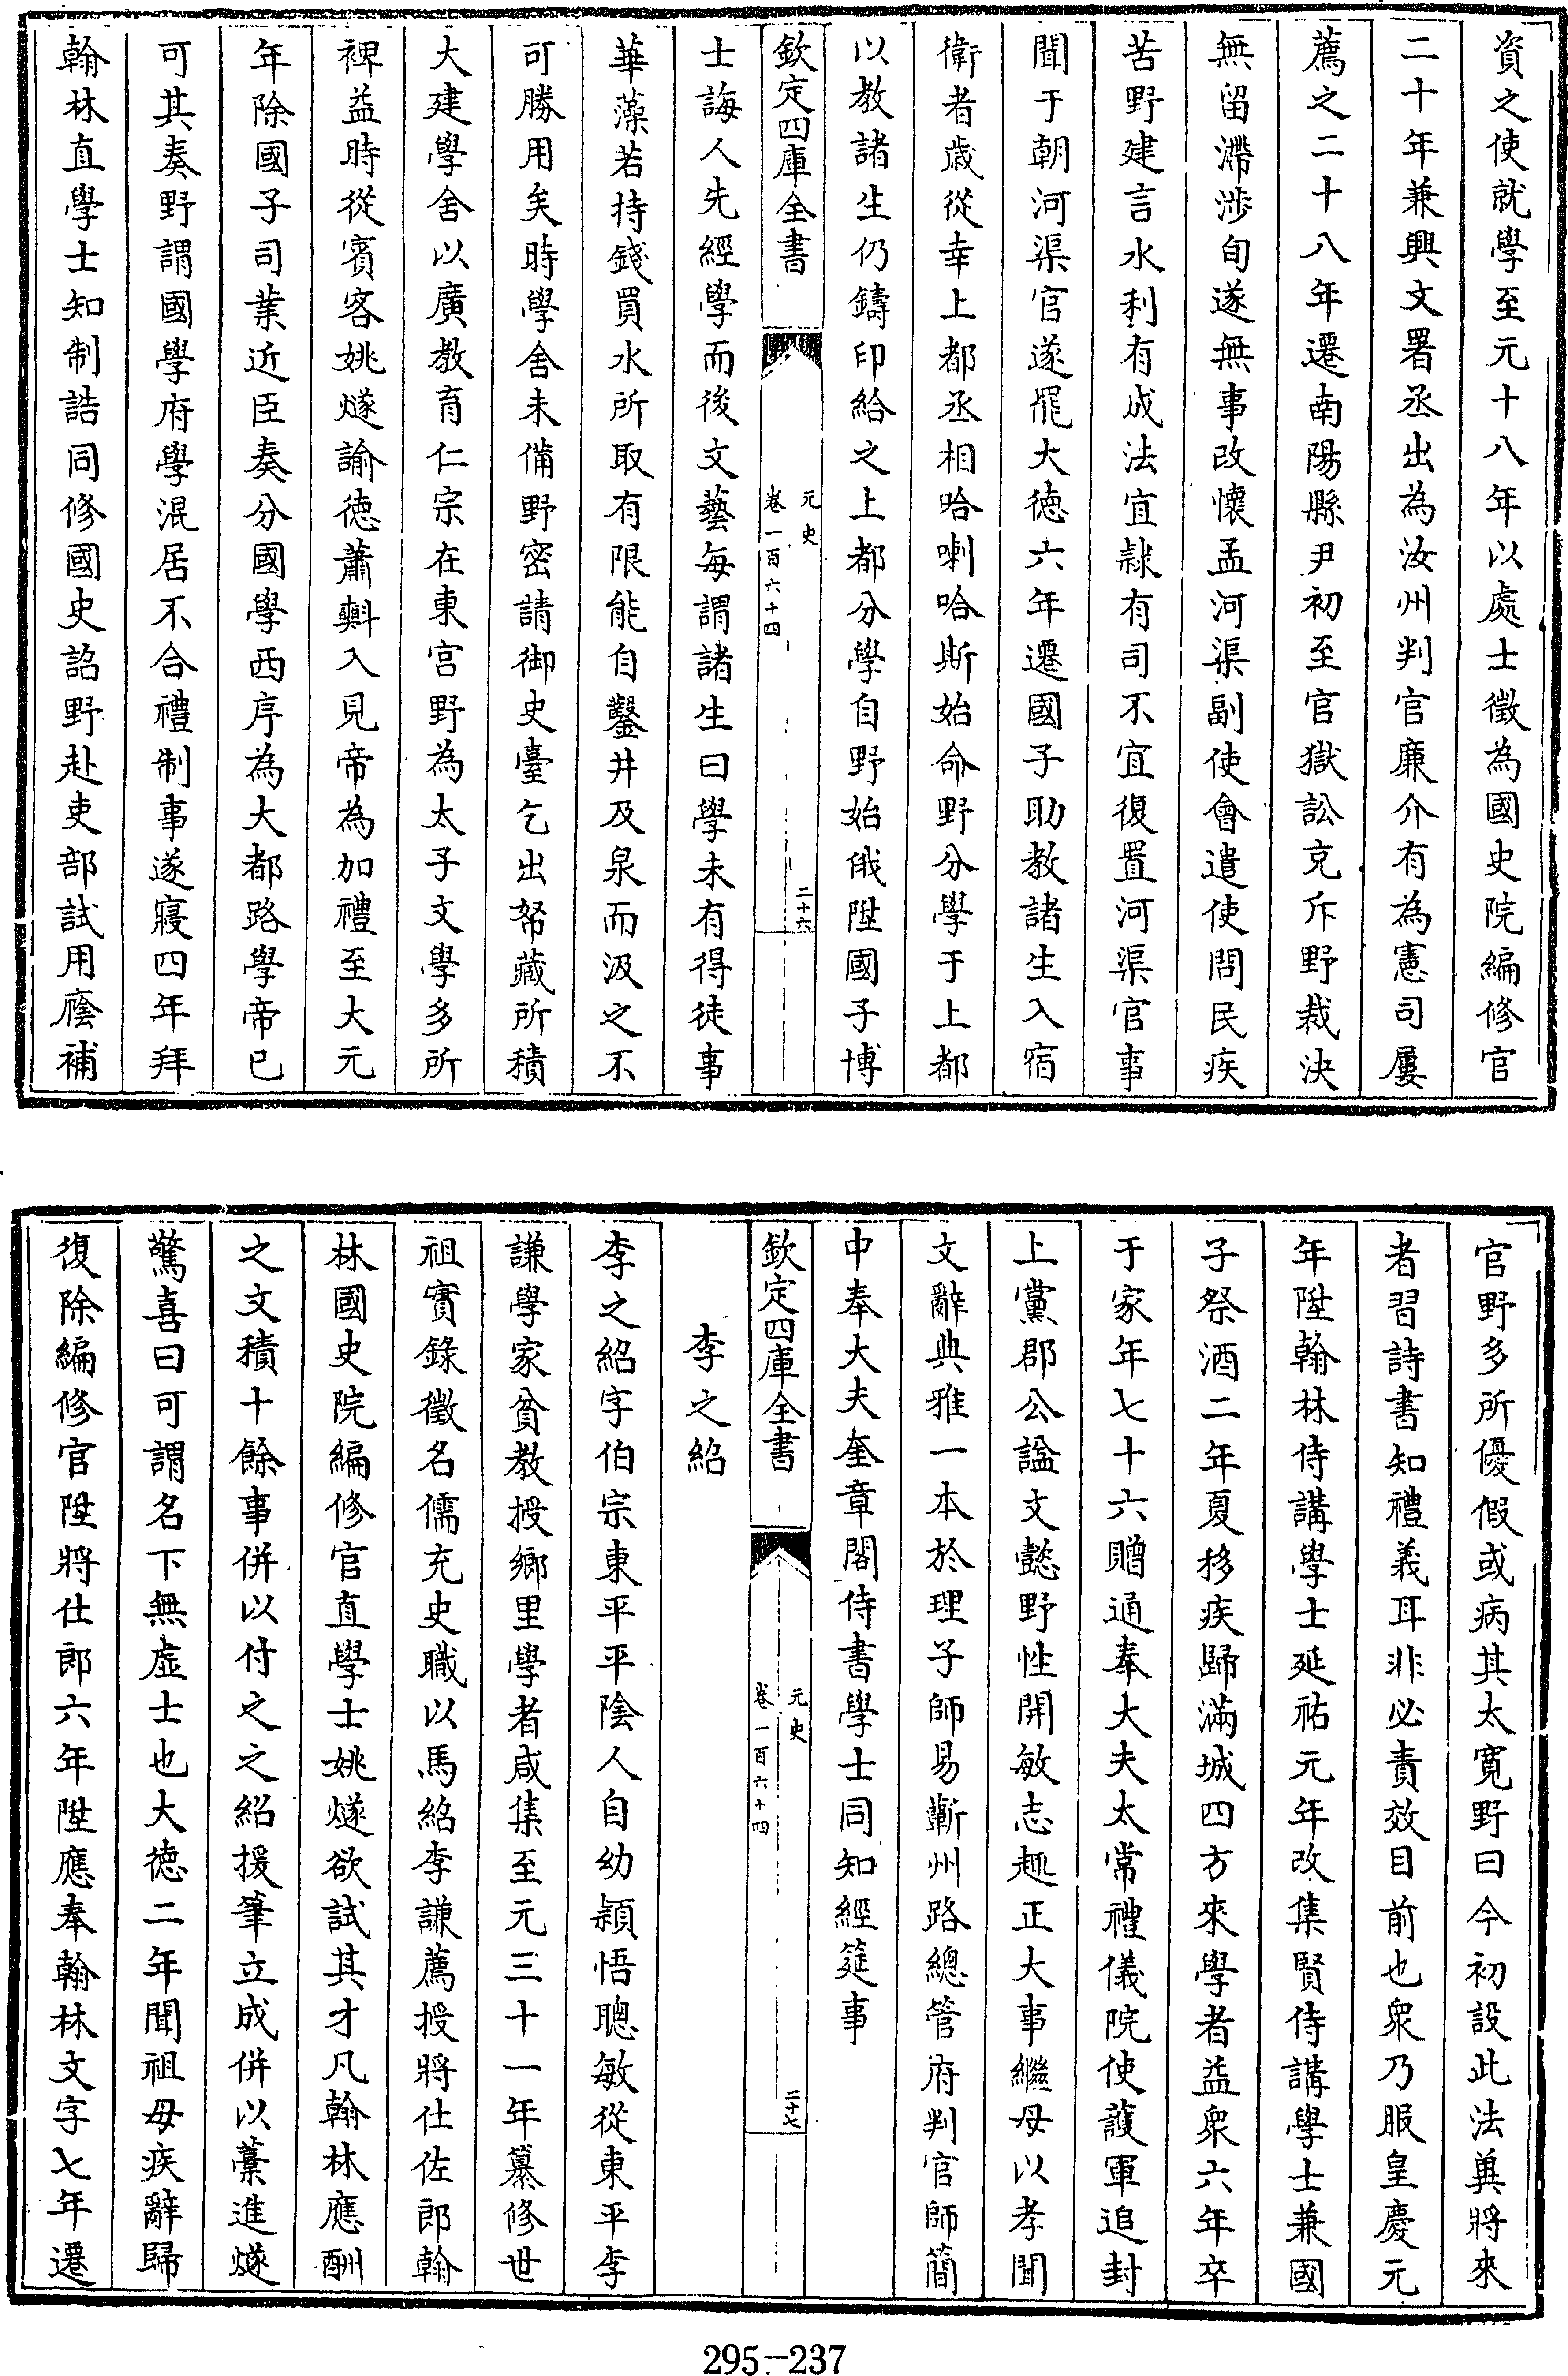 資之使就學至元十八年以處士徵為國史院編修官
二十年兼興文署丞出為汝州判官廉介有為憲司屢
薦之二十八年遷南陽縣尹初至官獄訟充斥野裁決
無留滯涉旬遂無事改懷孟河渠副使會遣使問民疾
苦野建言水利有成法宜隸有司不宜復置河渠官事
聞于朝河渠官遂罷大徳六年遷國子助教諸生入宿
衛者歳從幸上都丞相哈喇哈斯始命野分學于上都
以教諸生仍鑄印給之上都分學自野始俄陞國子博
欽定四庫全書
元史
卷一百六十四
二十六
士誨人先經學而後文藝每謂諸生曰學未有得徒事
華藻若持錢買水所取有限能自鑿井及泉而汲之不
可勝用矣時學舍未備野密請御史臺乞出帑藏所積
大建學舍以廣教育仁宗在東宫野為太子文學多所
裨益時從賓客姚燧諭徳蕭㪺入見帝為加禮至大元
年除國子司業近臣奏分國學西序為大都路學帝已
可其奏野謂國學府學混居不合禮制事遂寢四年拜
翰林直學士知制誥同修國史詔野赴吏部試用廕補
官野多所優假或病其太寛野曰今初設此法冀將來
者習詩書知禮義耳非必責效目前也衆乃服皇慶元
年陞翰林侍講學士延祐元年改集賢侍講學士兼國
子祭酒二年夏移疾歸滿城四方來學者益衆六年卒
于家年七十六贈通奉大夫太常禮儀院使護軍追封
上黨郡公諡文懿野性開敏志趣正大事繼母以孝聞
文辭典雅一本於理子師易蘄州路總管府判官師簡
中奉大夫奎章閣侍書學士同知經筵事
欽定四庫全書
元史
卷一百六十四
二十七
李之紹
李之紹字伯宗東平平陰人自幼穎悟聰敏從東平李
謙學家貧教授鄉里學者咸集至元三十一年纂修世
祖實錄徵名儒充史職以馬紹李謙薦授將仕佐郎翰
林國史院編修官直學士姚燧欲試其才凡翰林應酬
之文積十餘事併以付之之紹援筆立成併以藁進燧
驚喜曰可謂名下無虛士也大徳二年聞祖母疾辭歸
復除編修官陞將仕郎六年陞應奉翰林文字七年遷
295-237